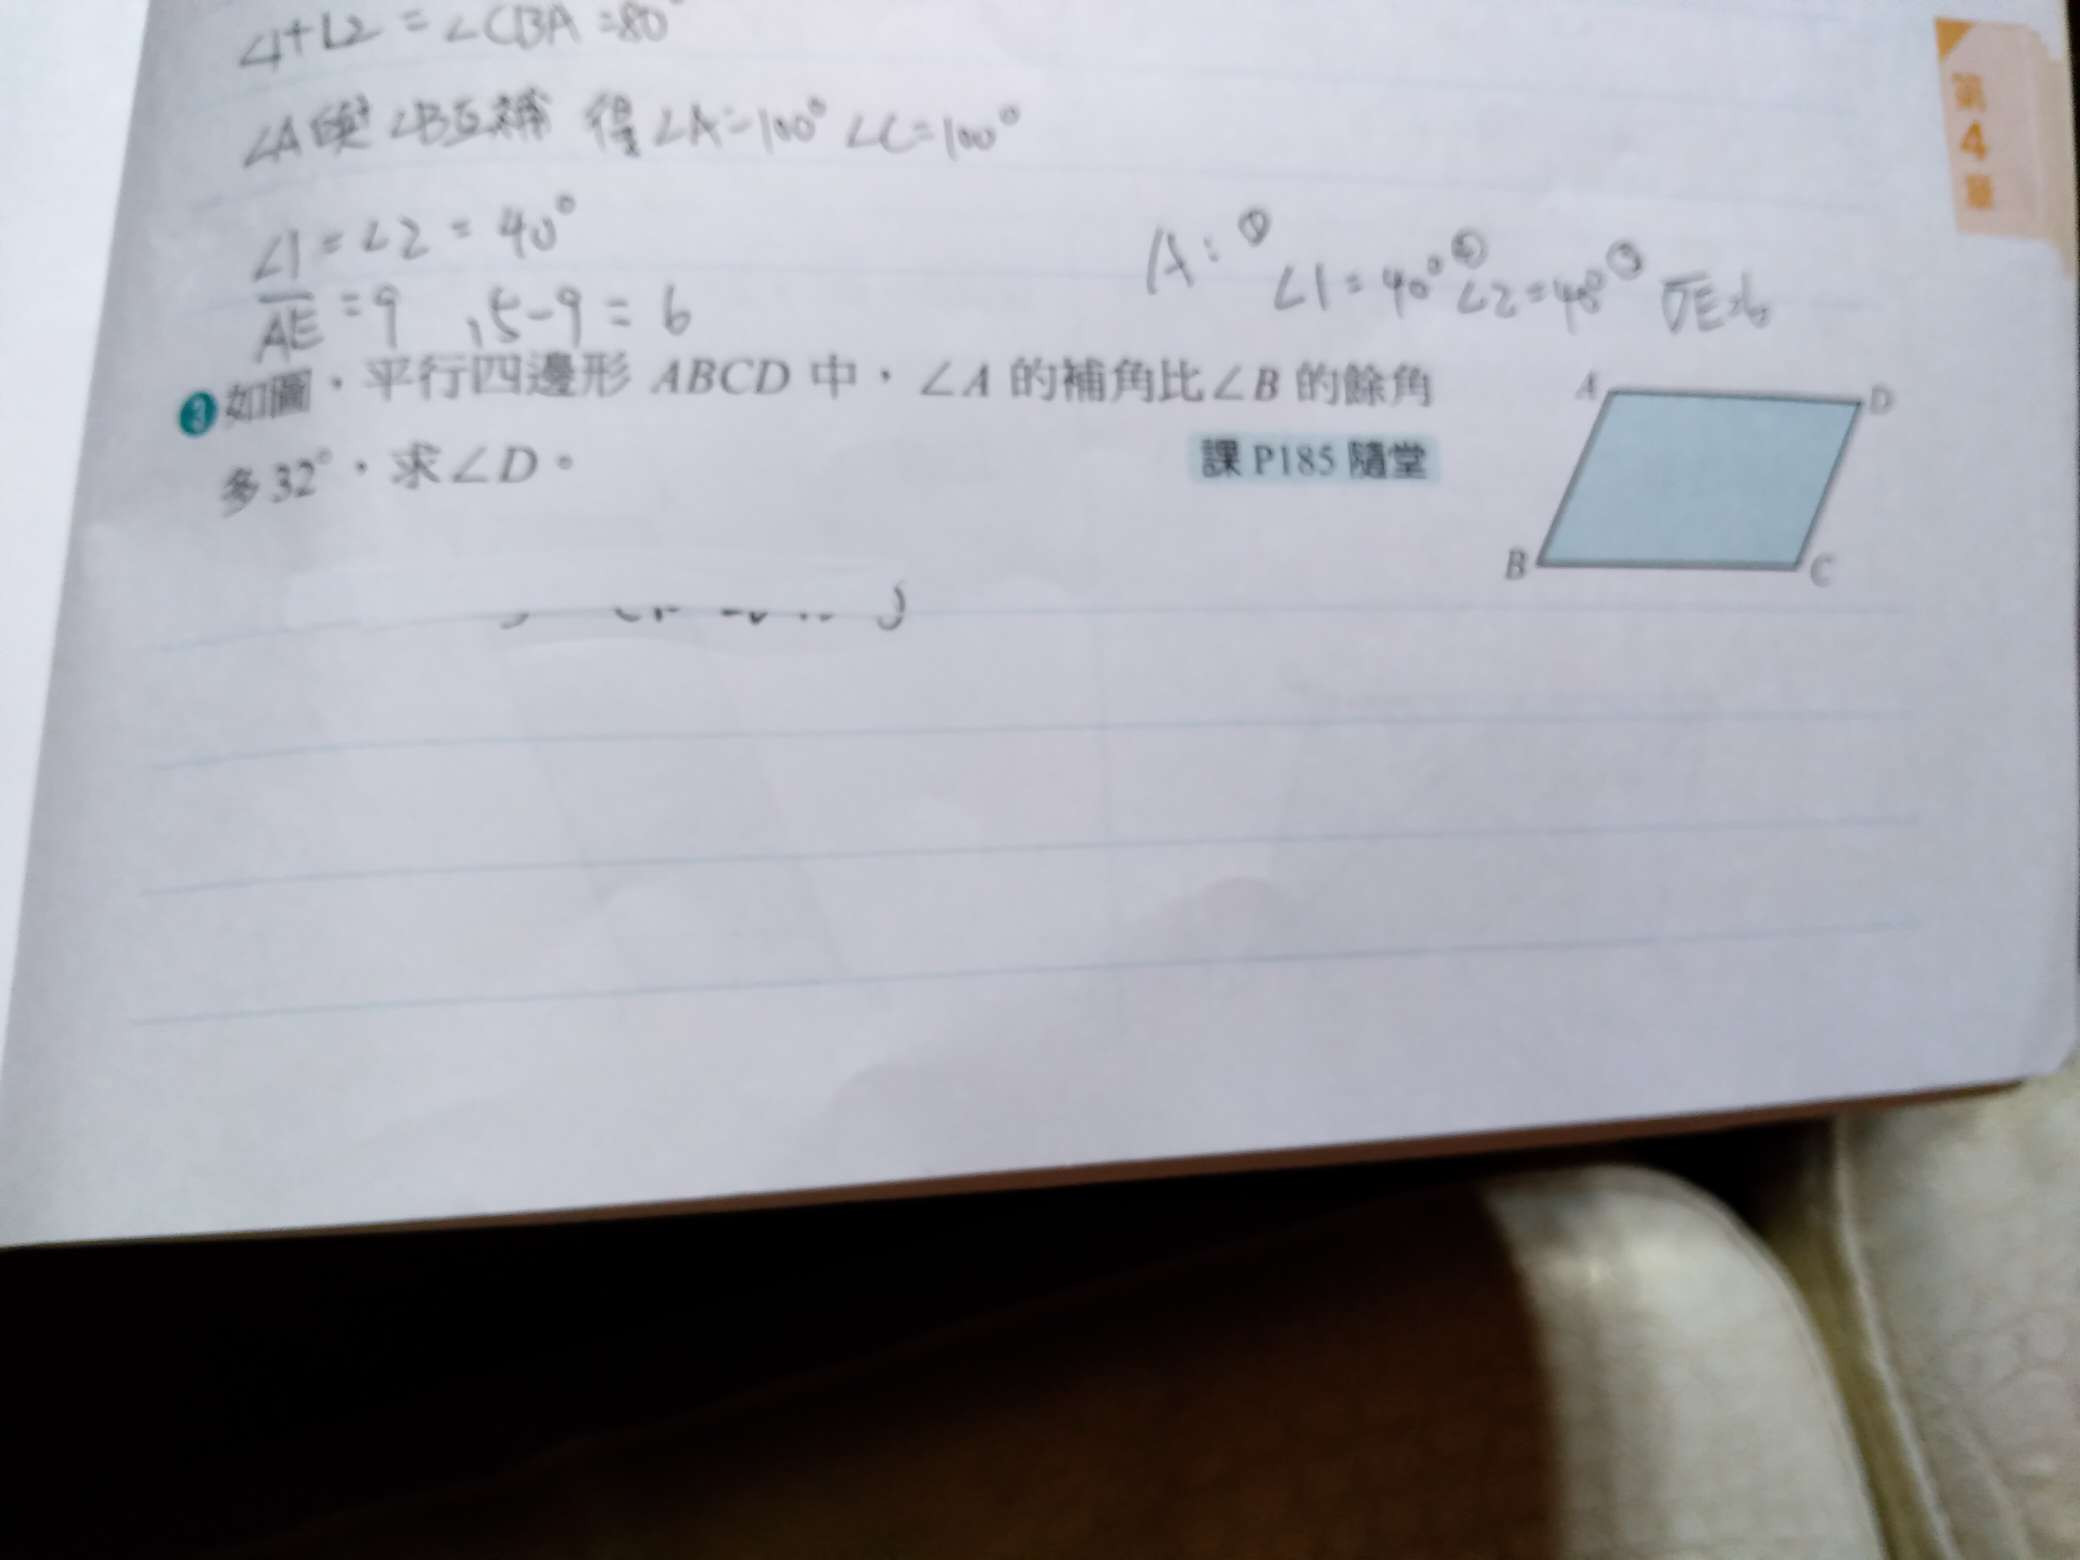 ∠1+∠2=∠CBA=80°
∠A與∠B互補 得∠A=100° ∠C=100°
∠1=∠2=40°
AE=9 15-9=6
A:① ∠1=40° ② ∠2=40° ③ DE=6
3 如圖,平行四邊形 ABCD 中,∠A 的補角比∠B 的餘角
多32°,求∠D。
課 P185 隨堂
A
D
B
C
第4章